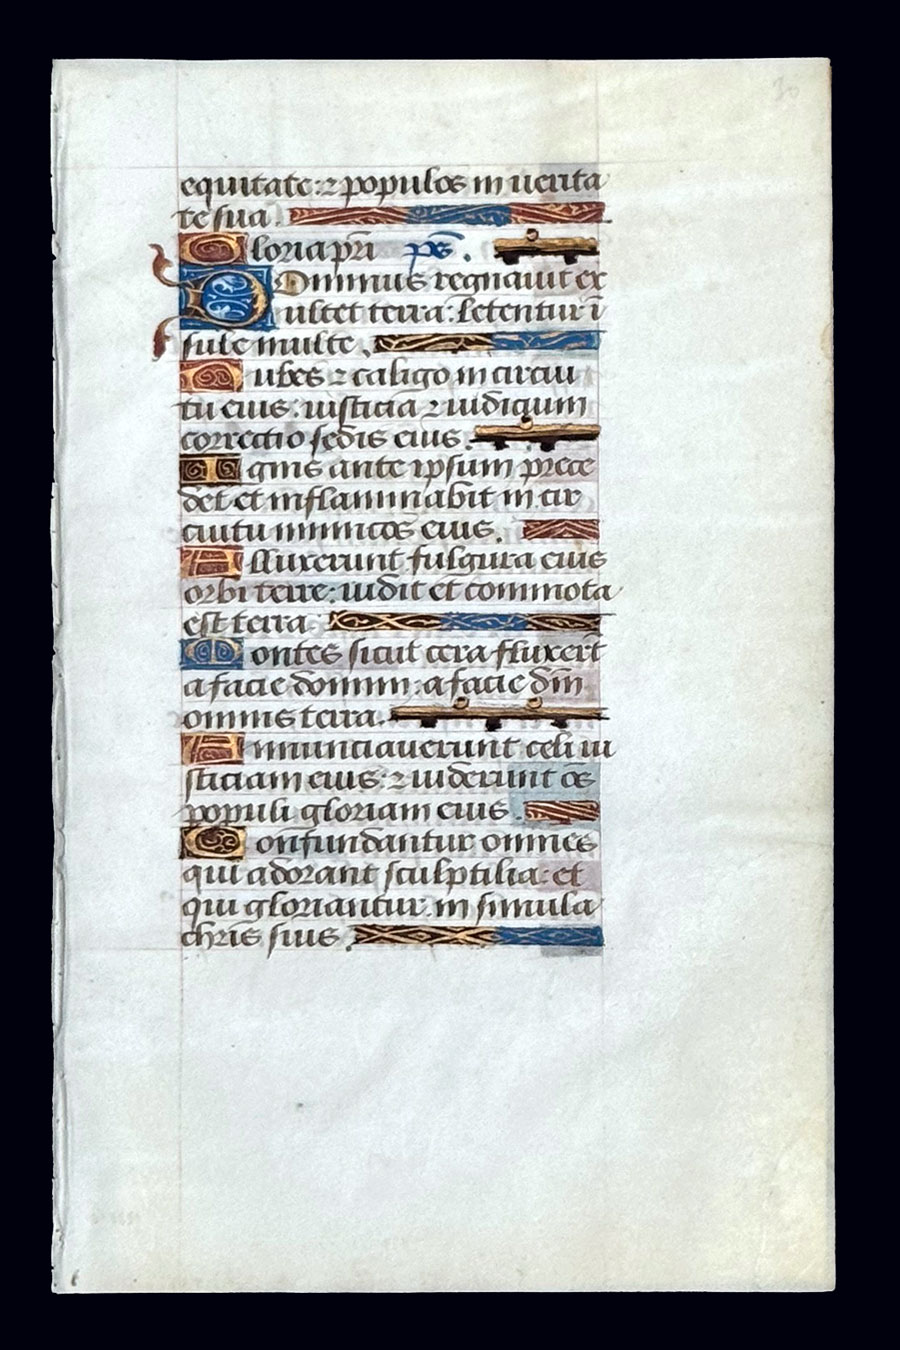 equitate: ⁊ populos in uerita
te sua.
Gloria pr̄i ps̄.
Dominus regnauit ex
ultet terra: letentur ī
sule multe.
Nubes ⁊ caligo in circui
tu eius: iusticia ⁊ iudicium
correctio sedis eius.
Ignis ante ipsum prece
det et inflammabit in cir
cuitu inimicos eius.
Alluxerunt fulgura eius
orbi terre: uidit et commota
est terra.
Montes sicut cera fluxert̄
a facie domini: a facie dn̄i
omnis terra.
Annunciauerunt celi iu
sticiam eius: ⁊ uiderunt os̄
populi gloriam eius.
Confundantur omnes
qui adorant sculptilia: et
qui gloriantur in simula
chris suis.